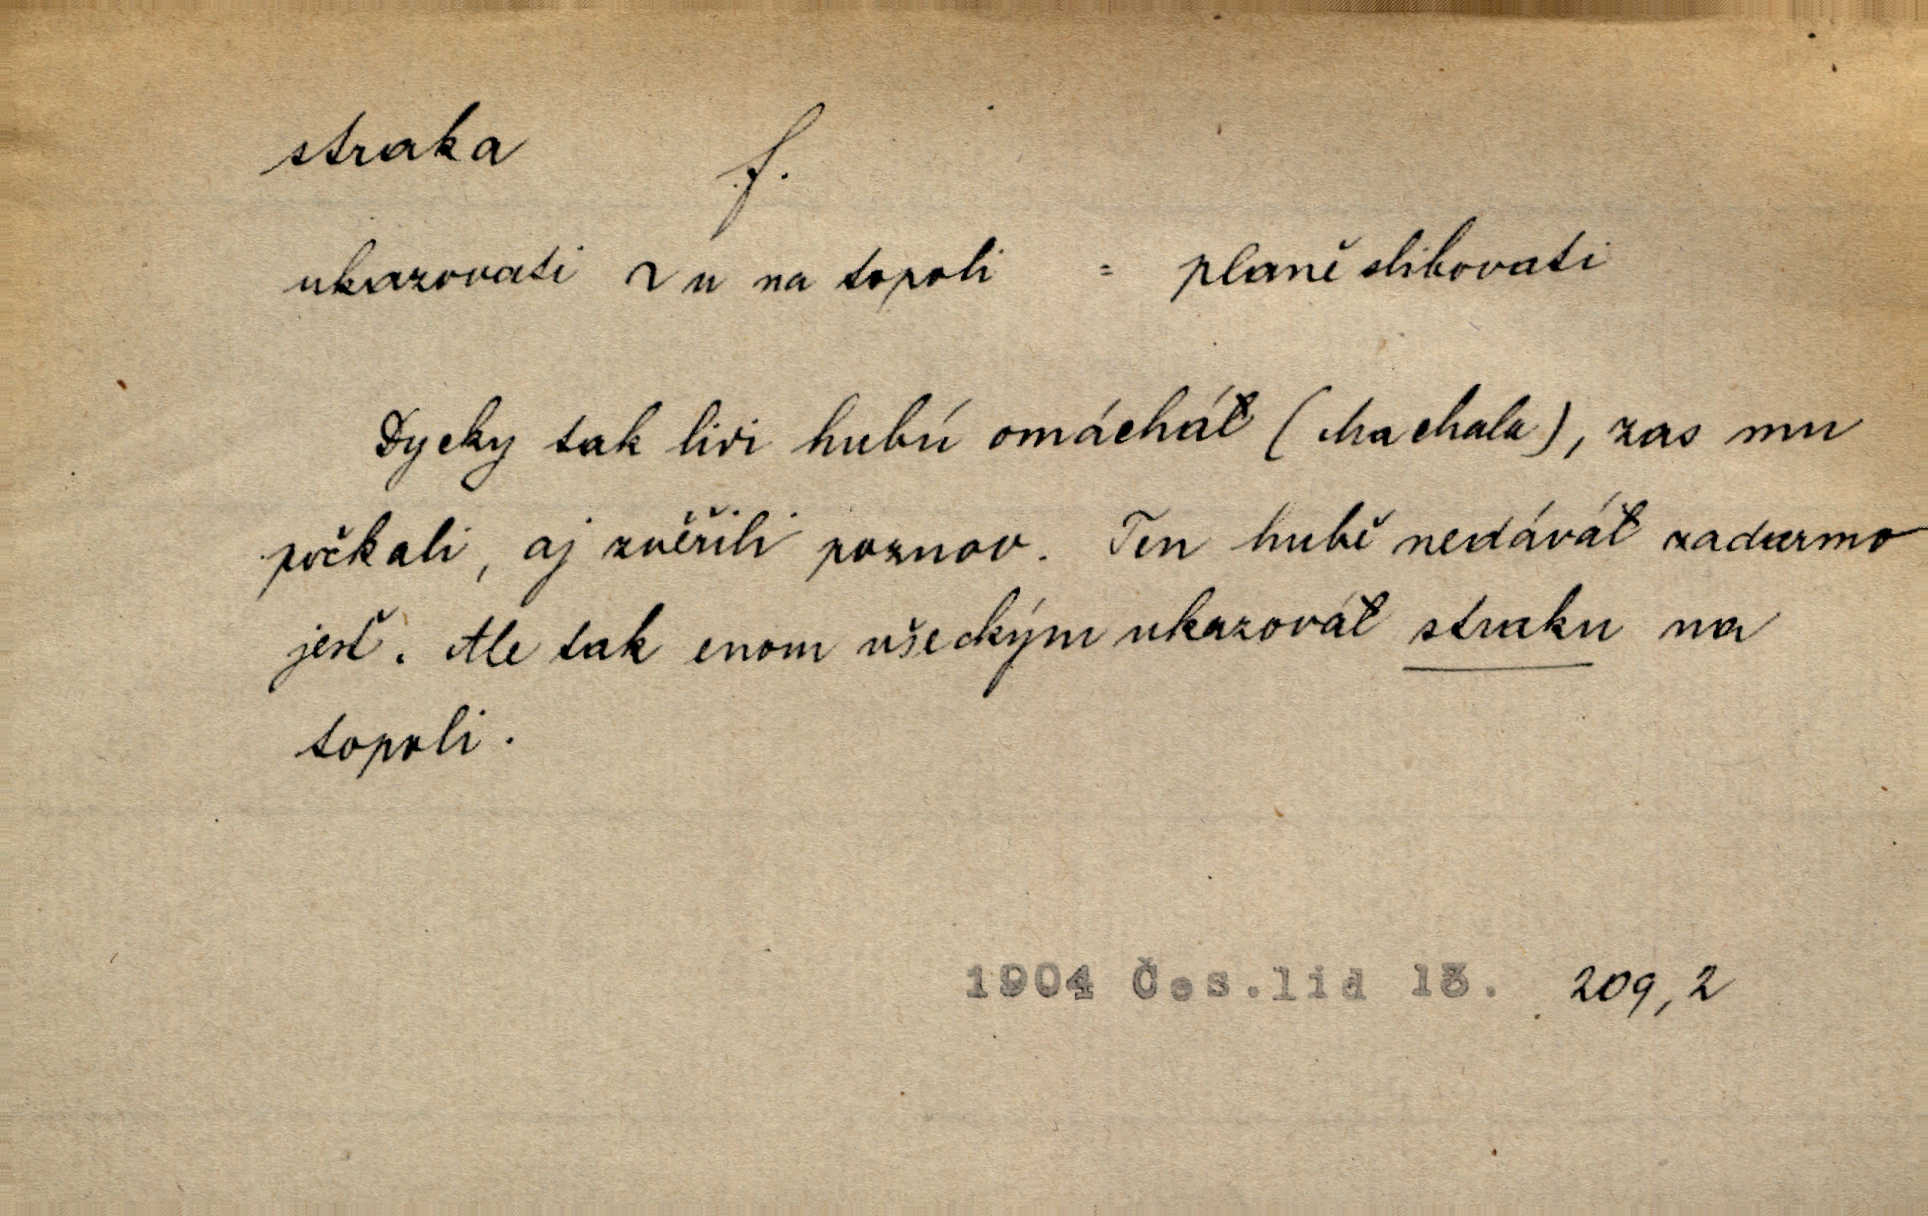 straka f.
ukazovati ~u na topoli = planě slibovati
Dycky tak livi hubú omácháł (Machala), zas mu
počkali, aj zvěřili poznov. Ten hubě nedáváł zadarmo
jesť. Ale tak enom všeckým ukazováł straku na
topoli.
1904 Čes.lid 13. 209,2